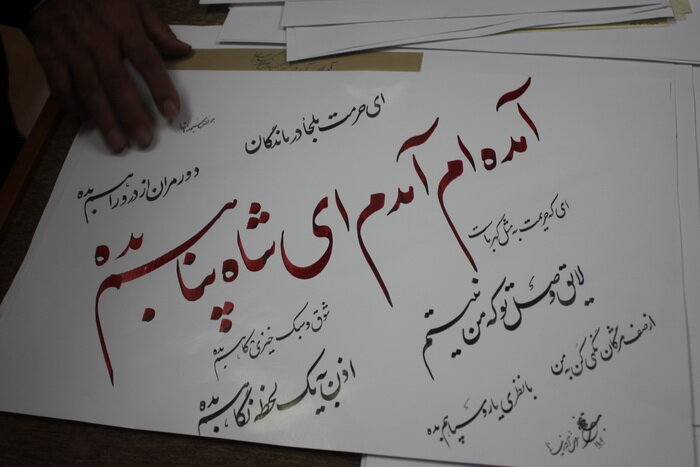 ای حرمت ملجأ درماندگان
دور مران از در و راهم بده
آمده ام آمدم ای شاه پناهم بده
ای که حریمت به مثل کهرباست
شوق و سبک خیزی کاهم بده
لایق وصل تو که من نیستم
اذن به یک لحظه نگاهم بده
از صف مژگان نگهی کن به من
با نظری یار و سپاهم بده